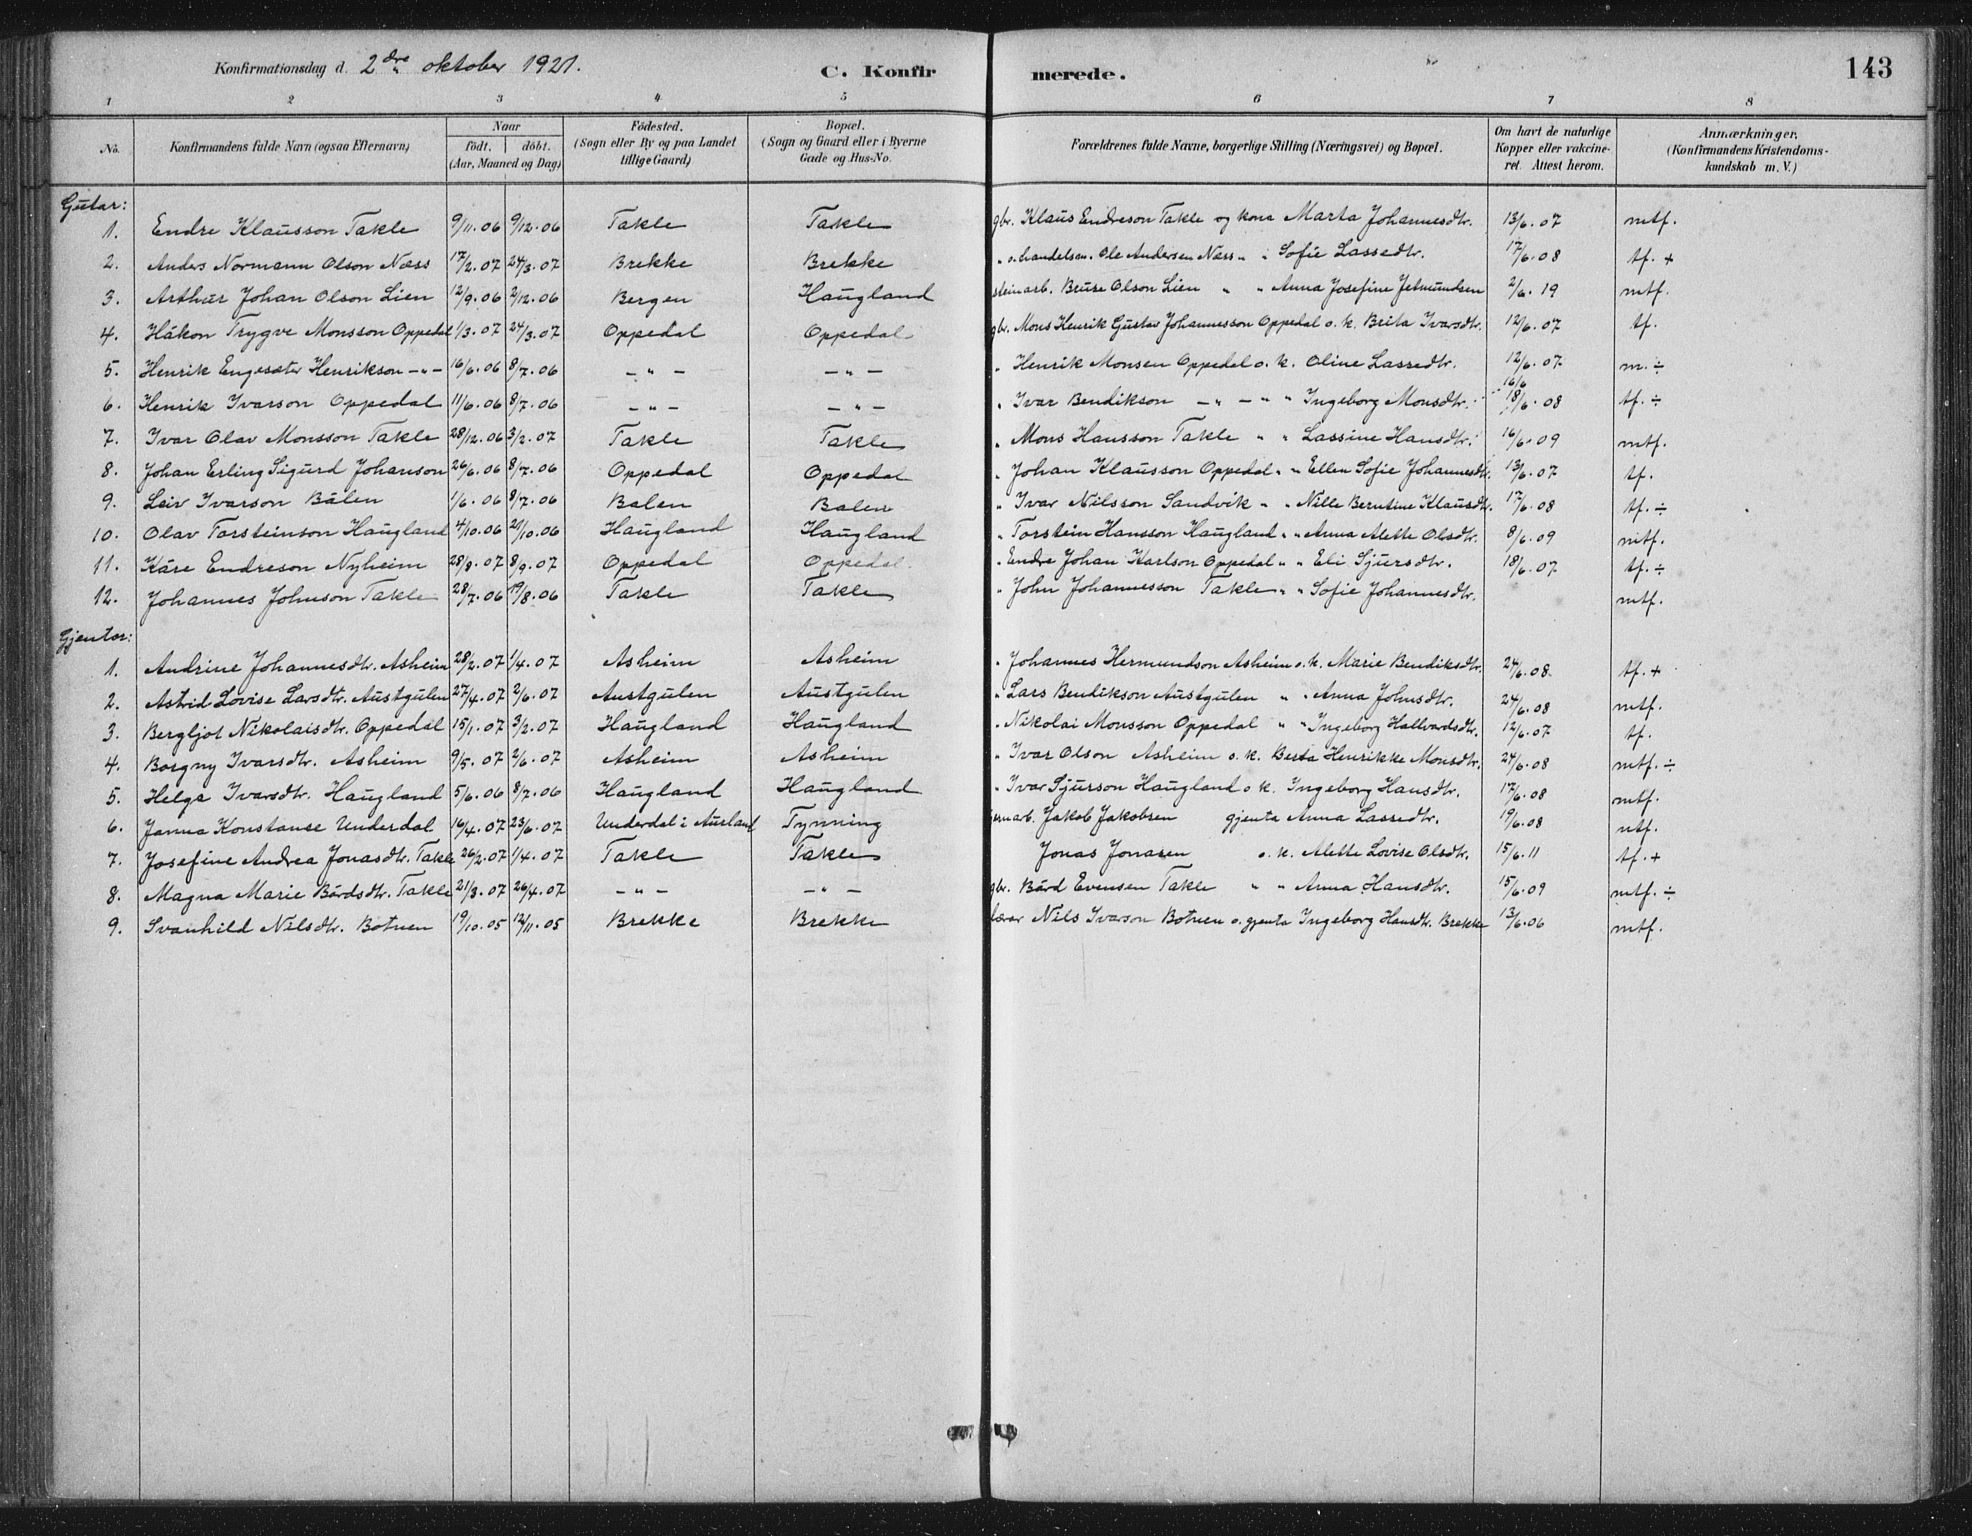 Konfirmationsdag d. 2dre oktober 1921. C. Konfirmerede. 143
1 2 3 4 5 6 7 8
No. Konfirmandens fulde Navn (ogsaa Efternavn) Naar født. døbt. (Aar, Maaned og Dag) Fødested. (Sogn eller By og paa Landet tillige Gaard) Bopæl. (Sogn og Gaard eller i Byerne Gade og Hus-No. Forældrenes fulde Navne, borgerlige Stilling (Næringsvei) og Bopæl. Om havt de naturlige Kopper eller vakcineret. Attest herom. Anmærkninger, (Konfirmandens Kristendomskundskab m. V.)
Gutar:
1. Endre Klausson Takle 9/11.06 9/12.06 Takle Takle gbr. Klaus Endreson Takle og kona Marta Johannesdtr. 13/6.07 mtf.
2. Anders Normann Olson Næss 17/2.07 24/3.07 Brekke Brekke " o. handelsm. Ole Andersen Næss " " Sofie Lassedtr. 17/6.08 tf. +
3. Arthur Johan Olson Lien 12/9.06 2/12.06 Bergen Haugland steinarb. Bruse Olson Lien " " Anna Josefine Jetmundsen 2/6.19 mtf.
4. Håkon Trygve Monsson Oppedal 1/3.07 24/3.07 Oppedal Oppedal gbr. Mons Henrik Gustav Johannesson Oppedal o. k. Brita Ivarsdtr. 12/6.07 tf.
5. Henrik Engesæter Henrikson -"- 16/6.06 8/7.06 -"- -"- " Henrik Monsen Oppedal o. k. Oline Lassedtr. 12/6.07 m. ÷
6. Henrik Ivarson Oppedal 11/6.06 8/7.06 -"- -"- " Ivar Bendikson -"- " " Ingeborg Monsdtr. 16/6 18/6.08 tf. ÷
7. Ivar Olav Monsson Takle 28/12.06 3/2.07 Takle Takle " Mons Hansson Takle " " Lassine Hansdtr. 16/6.09 mtf.
8. Johan Erling Sigurd Johanson 26/6.06 8/7.06 Oppedal Oppedal " Johan Klausson Oppedal " " Ellen Sofie Johannesdtr. 13/6.07 tf.
9. Leiv Ivarson Bålen 1/6.06 8/7.06 Balen Balen " Ivar Nilsson Sandvik " " Nille Berntine Klausdtr. 17/6.08 tf. ÷
10. Olav Torsteinson Haugland 4/10.06 21/10.06 Haugland Haugland " Torstein Hansson Haugland " " Anna Alette Olsdtr. 8/6.09 mtf.
11. Kåre Endreson Nyheim 28/8.07 8/9.07 Oppedal Oppedal " Endre Johan Karlson Oppedal " " Eli Sjursdtr. 18/6.07 tf. ÷
12. Johannes Johnson Takle 28/7.06 19/8.06 Takle Takle " John Johannesson Takle " " Sofie Johannesdtr. mtf.
Gjentor:
1. Andrine Johannesdtr. Asheim 28/2.07 1/4.07 Asheim Asheim " Johannes Hermundson Asheim o. k. Marie Bendiksdtr. 24/6.08 tf. +
2. Astrid Lovise Larsdtr. Austgulen 27/4.07 2/6.07 Austgulen Austgulen " Lars Bendikson Austgulen " " Anna Johnsdtr. 24/6.08 mtf.
3. Bergljot Nikolaisdtr. Oppedal 15/1.07 3/2.07 Haugland Haugland " Nikolai Monsson Oppedal " " Ingeborg Hallvardsdtr. 12/6.07 tf.
4. Borgny Ivarsdtr. Asheim 9/5.07 2/6.07 Asheim Asheim " Ivar Olson Asheim o. k. Berta Henrikke Monsdtr. 24/6.08 mtf. ÷
5. Helga Ivarsdtr. Haugland 5/6.06 8/7.06 Haugland Haugland " Ivar Sjurson Haugland o k. Ingeborg Hansdtr. 17/6.08 mtf.
6. Janna Konstanse Underdal 16/4.07 23/6.07 Underdal i Aurland Tynning jernarb. Jakob Jakobsen gjenta Anna Lassedtr. 19/6.08 ntf.
7. Josefine Andrea Jonasdtr. Takle 26/2.07 1/4.07 Takle Takle Jonas Jonasen o. k. Alette Lovise Olsdtr. 15/6.11 tf. +
8. Magna Marie Bårdsdtr. Takle 21/3.07 26/4.07 -"- -"- gbr. Bård Evensen Takle " " Anna Hansdtr. 15/6.09 mtf. ÷
9. Svanhild Nilsdtr. Botnen 19/10.05 12/11.05 Brekke Brekke lærar Nils Ivarson Botnen o. gjenta Ingeborg Hansdtr. Brekke 13/6.06 mtf.